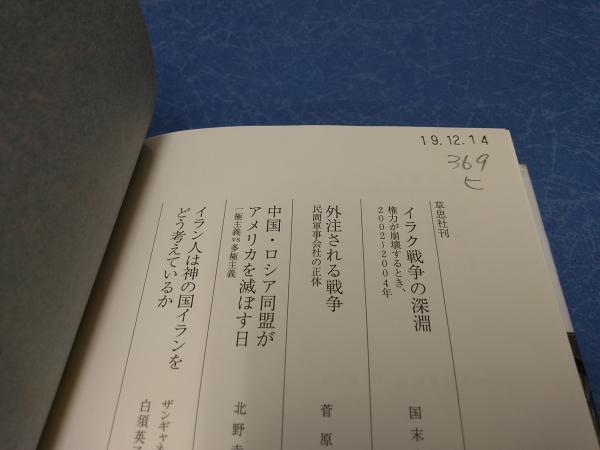 19.12.14
369
ヒ
草思社刊
イラク戦争の深淵
権力が崩壊するとき、
2002〜2004年
国末
外注される戦争
民間軍事会社の正体
菅原
中国・ロシア同盟が
アメリカを滅ぼす日
一極主義vs多極主義
北野幸
イラン人は神の国イランを
どう考えているか
ザンギャネ
白須英子